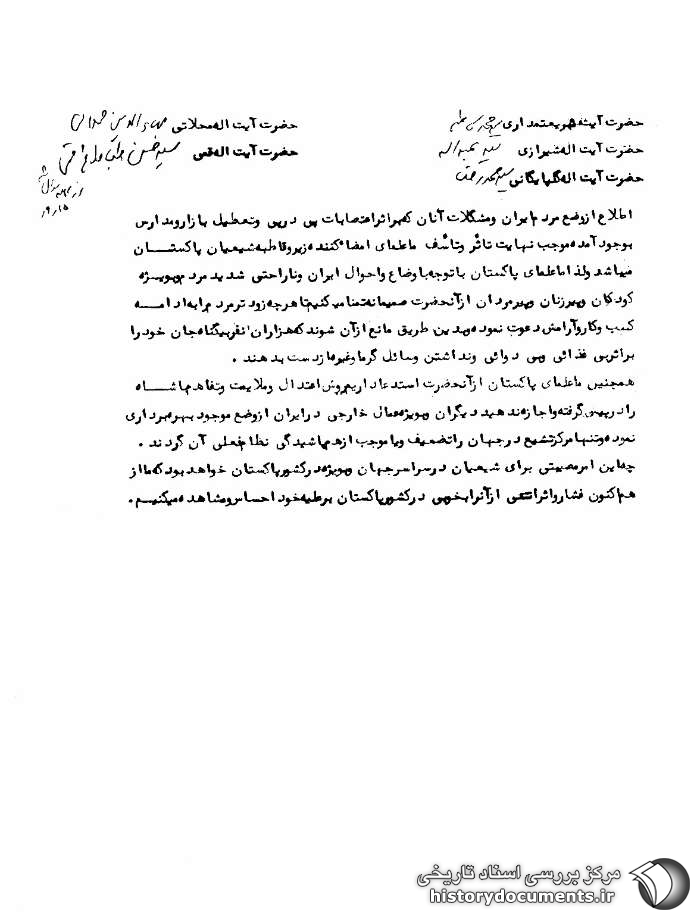 حضرت آیت‌اله شریعتمداری سید محمد کاظم
حضرت آیت اله شیرازی سید عبداله
حضرت آیت اله گلپایگانی سید محمد رضا
حضرت آیت اله محلاتی بهاء الدین محلاتی
حضرت آیت اله قمی سید حسن طباطبائی قمی
اطلاع از وضع مردم ایران و مشکلات آنان که بر اثر اعتصابات پی در پی و تعطیل بازار و مدارس
بوجود آمده موجب نهایت تاثر و تاسف ماعلمای امضا کننده زیر و قاطبه شیعیان پاکستان
میباشد ولذا ماعلمای پاکستان با توجه با وضاع و احوال ایران و ناراحتی شدید مردم بویژه
کودکان و پیرزنان و پیرمردان از آنحضرت صمیمانه تمنا میکنیم تا هرچه زودتر مردم را به ادامه
کسب و کار و آرامش دعوت نموده و بدین طریق مانع از آن شوند که هزاران نفر بیگناه جان خود را
بر اثر بی غذائی و بی دوائی و نداشتن وسائل گرما و غیره از دست بدهند .
همچنین ماعلمای پاکستان از آنحضرت استدعا داریم روش اعتدال و ملایمت و تفاهم با شاه
را در پیش گرفته و اجازه ندهید دیگران و بویژه عمال خارجی در ایران از وضع موجود بهره برداری
نموده و تنها مرکز تشیع در جهان را تضعیف و یا موجب از هم پاشیدگی نظام فعلی آن گردند .
چه این امر مصیبتی برای شیعیان در سراسر جهان و بویژه در کشور پاکستان خواهد بود که ما از
هم اکنون فشار و اثرات منفی از آنرا بخوبی در کشور پاکستان بر علیه خود احساس و مشاهده میکنیم .
مرکز بررسی اسناد تاریخی
historydocuments.ir